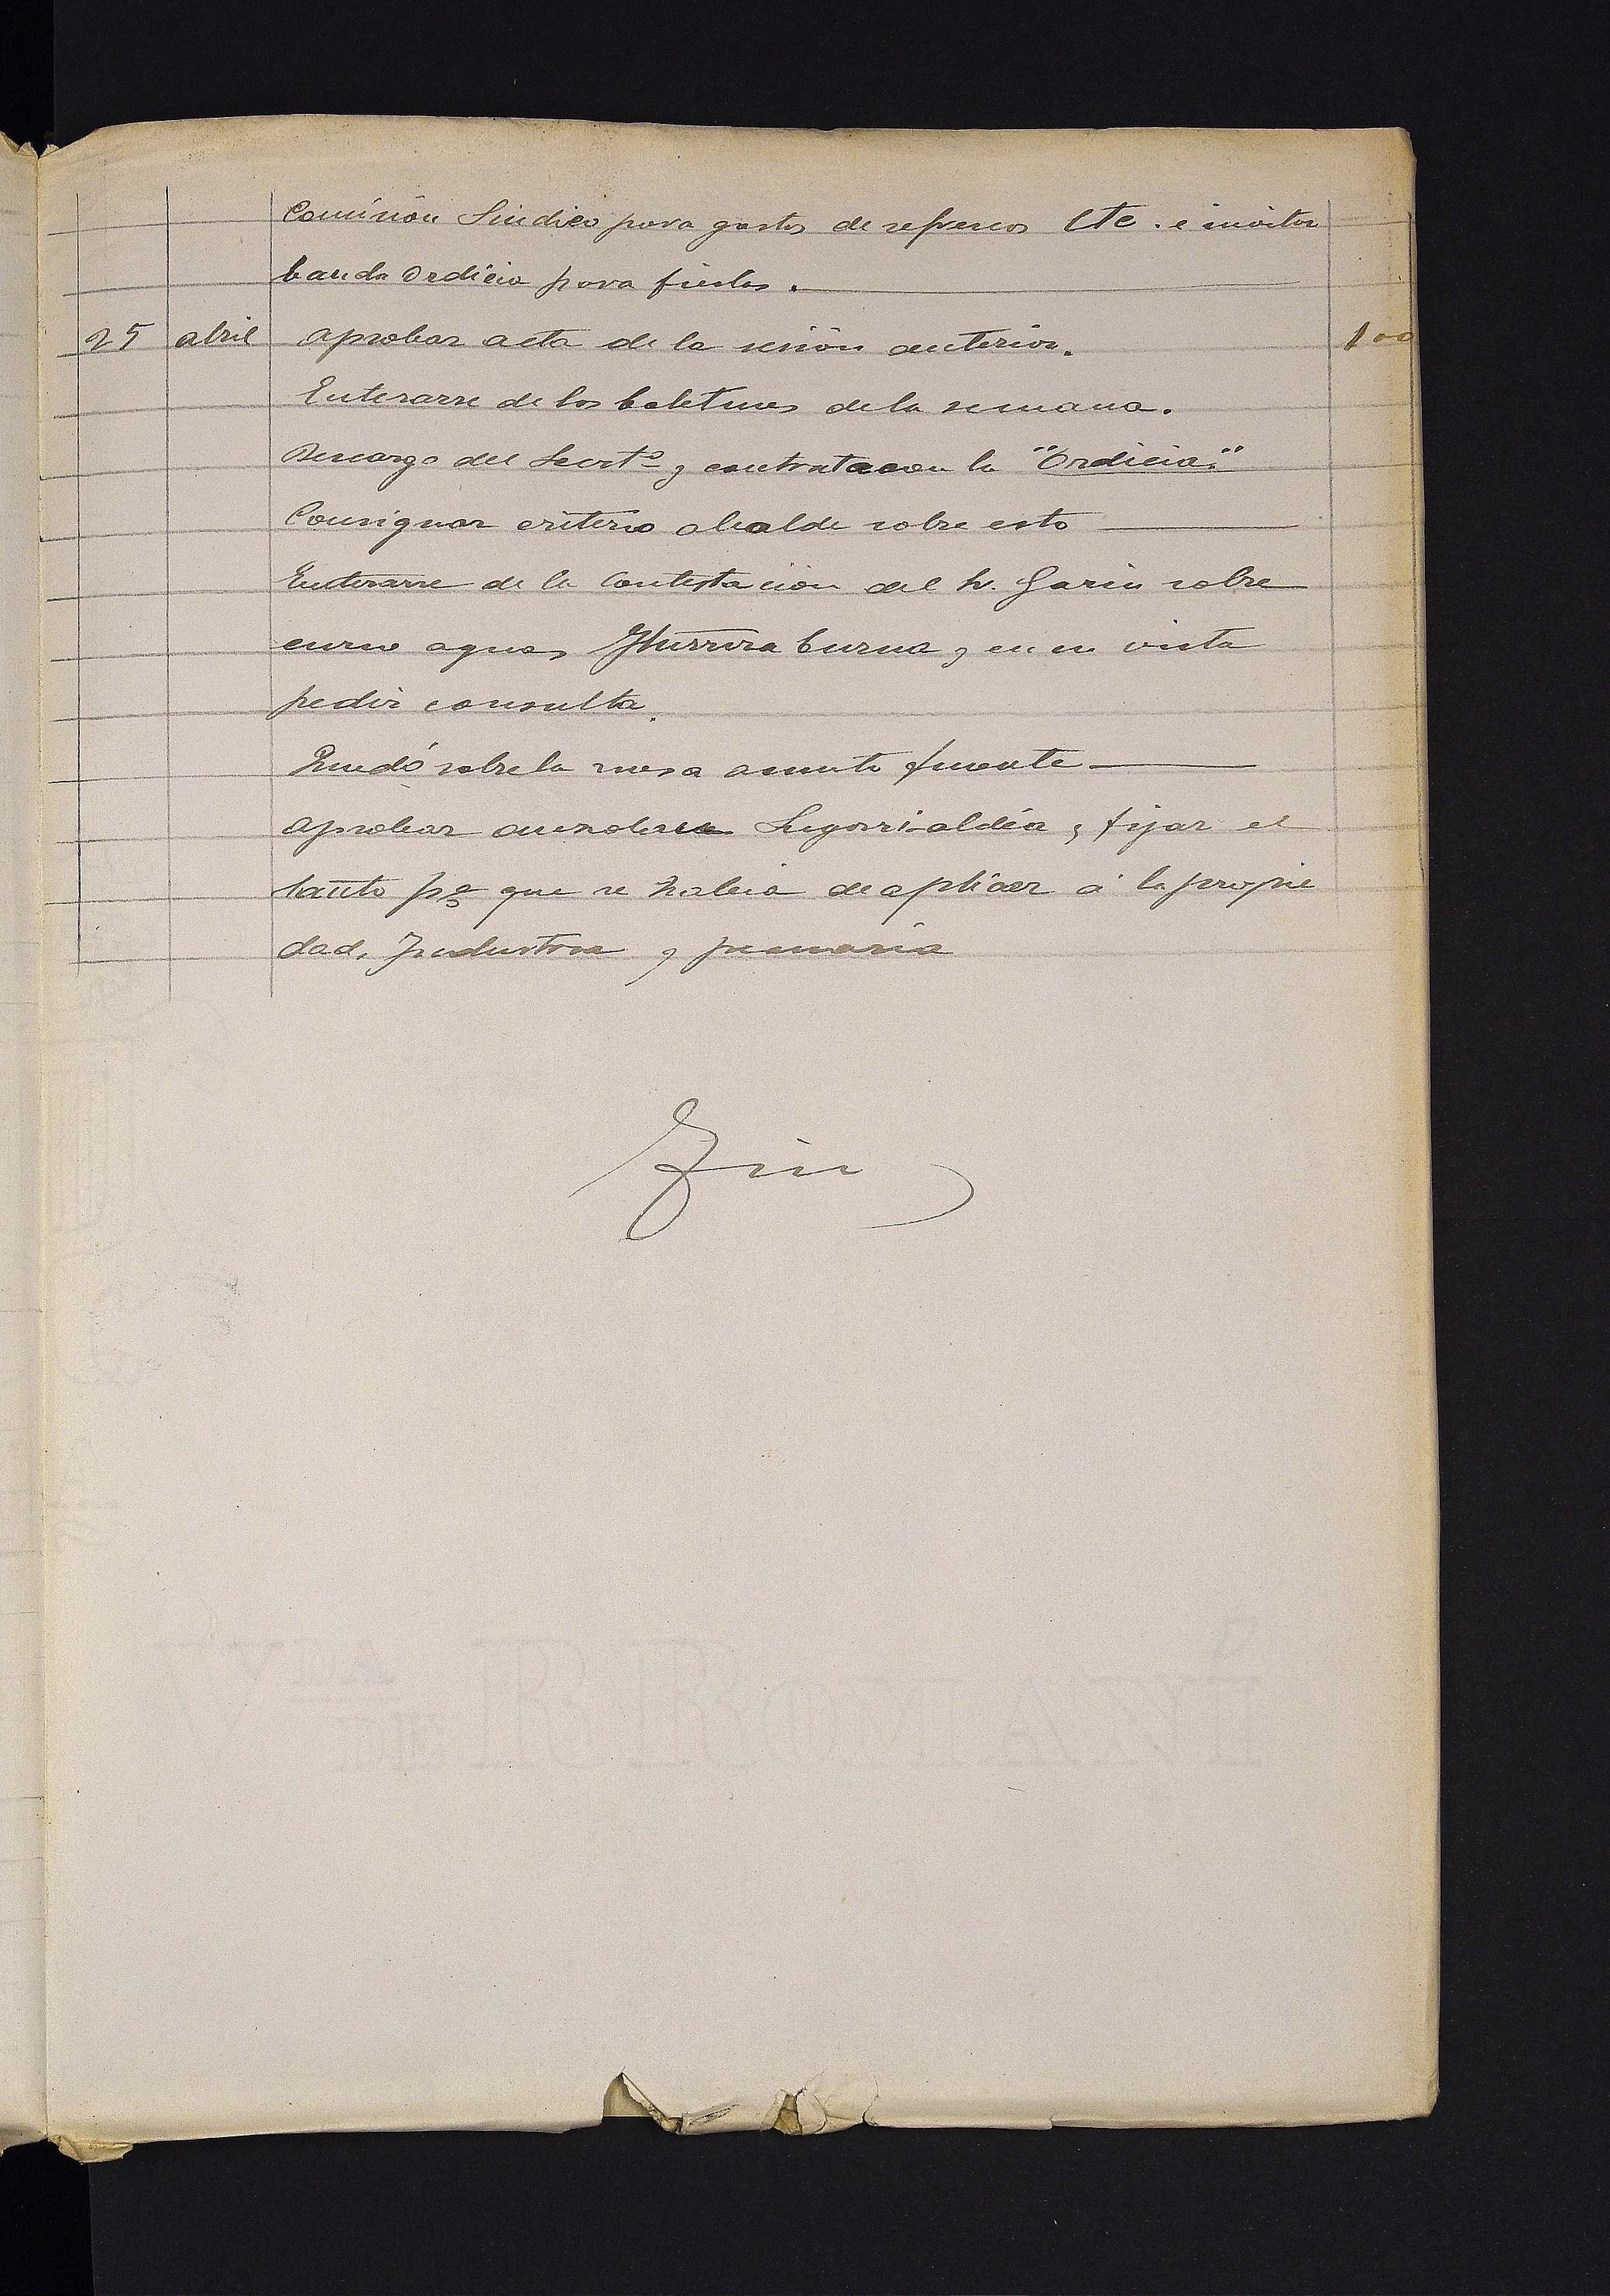 Comisión Sindico para gastos de refrescos etc. é invitar
banda Ordicia para fiestas.
25 abril aprobar acta de la sesion anterior. 100
Enterarse de los boletines de la semana.
Descargo del Secrt.º y contrata con la "Ordicia."
Consignar criterio alcalde sobre esto
Enterarse de la Contestacion del Sr. Garin sobre
curso aguas Yturrera buruz, en su vista
pedir consulta.
Quedó sobre la mesa asunto fuente
aprobar Lugorri-aldea, fijar el
tanto pg que se habia de aplicar á la propie
dad, Industria y pecuaria
Fin